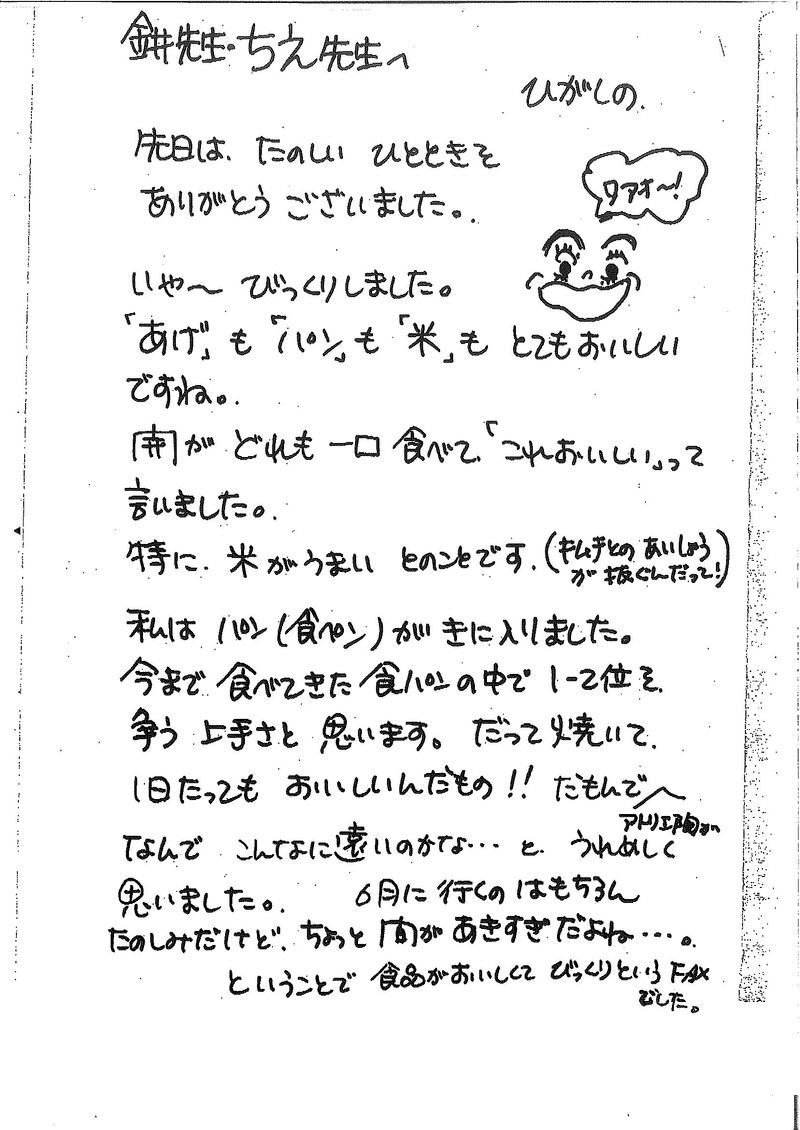 金井先生・ちえ先生へ
ひがしの.
先日は、たのしい ひとときを
ありがとう ございました。
ワァオ〜!
いや〜 びっくりしました。
「あげ」も「パン」も「米」も とてもおいしい
ですね。
開が どれも 一口 食べて、「これおいしい」って
言いました。
特に、米がうまい とのことです。(キムチとの あいしょう
が 抜ぐんだって!)
私は パン(食パン)が きに入りました。
今まで 食べてきた 食パンの中で 1〜2位を、
争う 上手さと 思います。だって 焼いて、
1日たっても おいしいんだもの!! だもんで
アトリエ陶が
なんで こんなに遠いのかな… と、うれめしく
思いました。 6月に 行くの はもちろん
たのしみだけど、ちょっと 間が あきすぎだよね…。
ということで 食品がおいしくて びっくりという FAX
でした。